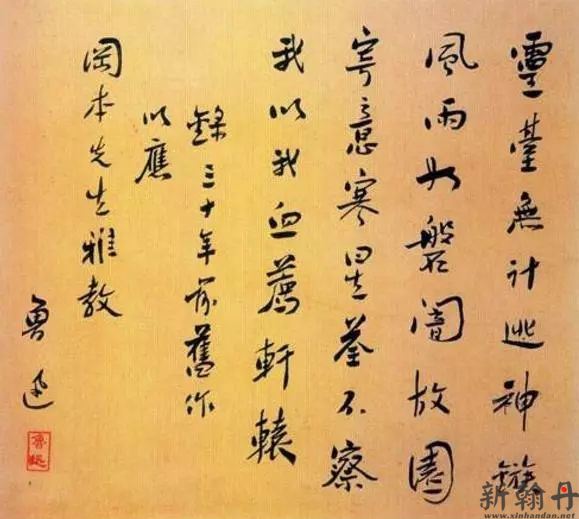 靈臺無計逃神鏃
風雨如磐闇故園
寄意寒星荃不察
我以我血薦軒轅
錄三十年前舊作
以應
岡本先生雅教
魯迅
魯迅
新翰丹
www.xinhandan.net